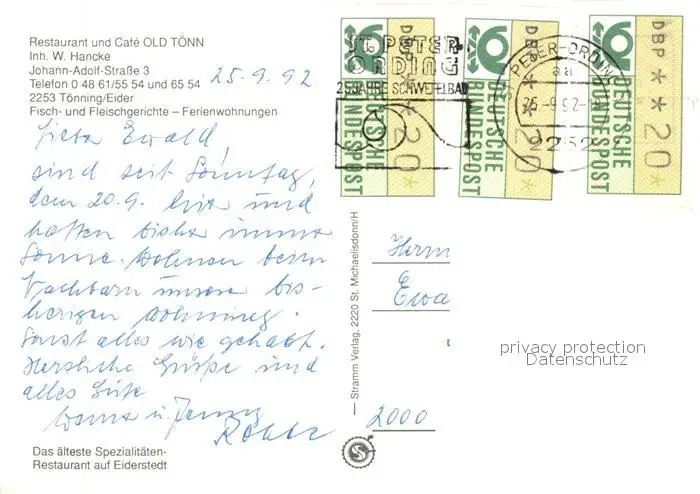 Restaurant und Café OLD TÖNN
Inh. W. Hancke
Johann-Adolf-Straße 3
Telefon 0 48 61/55 54 und 65 54
2253 Tönning/Eider
Fisch- und Fleischgerichte – Ferienwohnungen
25.9.92
Lieber Ewald,
sind seit Sonntag,
dem 20.9. hier und
hatten bisher immer
Sonne. Wohnen beim
Nachbarn unserer bis-
herigen Wohnung.
Sonst alles wie gehabt.
Herzliche Grüße und
alles Gute
u.
Das älteste Spezialitäten-
Restaurant auf Eiderstedt
— Stramm Verlag, 2220 St. Michaelisdonn/H
ST. PETER-
ORDING
25 JAHRE SCHWEFELBAD
ST. PETER-ORDING
aa
25-9.92-18
2252
DEUTSCHE
BUNDESPOST
DBP ** 20 *
DEUTSCHE
BUNDESPOST
DBP ** 20 *
DEUTSCHE
BUNDESPOST
DBP ** 20 *
Herrn
Ewa
2000
privacy protection
Datenschutz